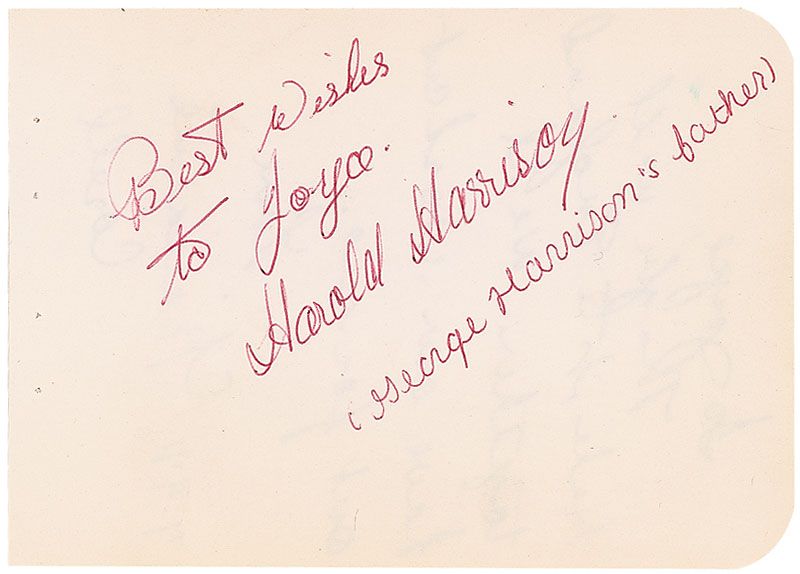 Best Wishes
to Joyce.
Harold Harrison.
(George Harrison's father)